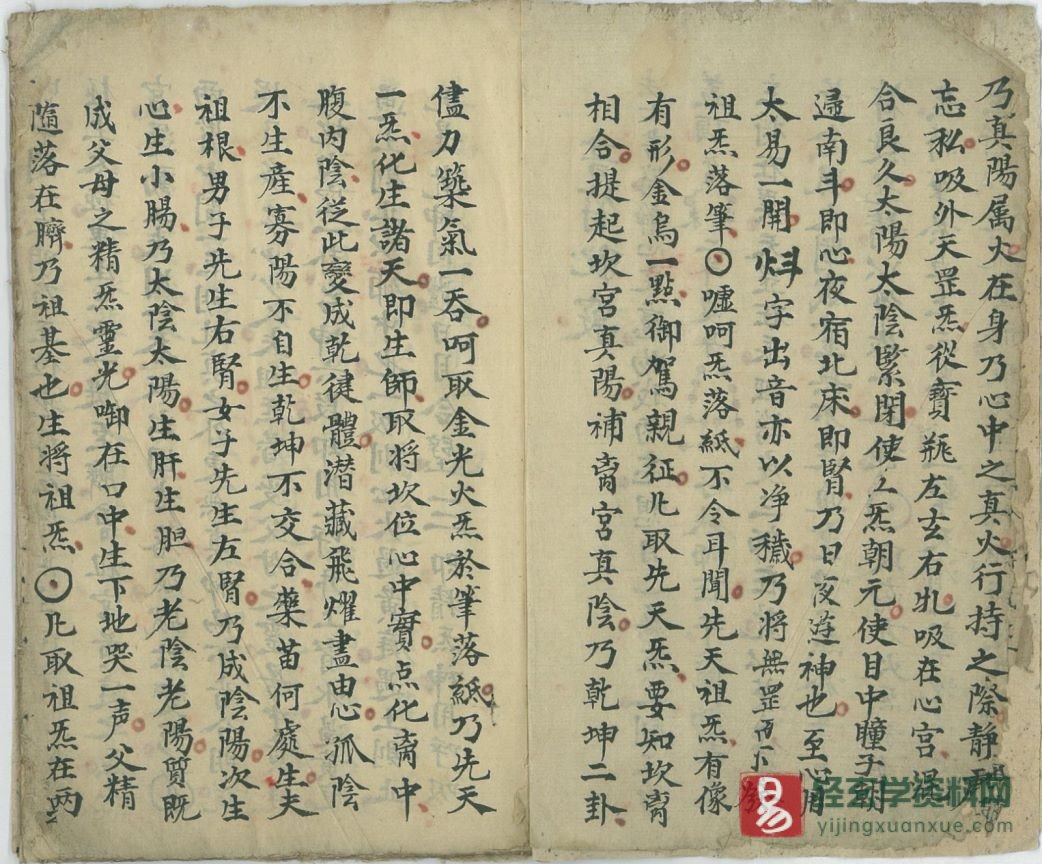 乃真陽属火在身乃心中之真火行持之際静
忘私吸外天罡炁從寳瓶左玄右牝吸在心宫混
合良久太陽太陰緊閉使工炁朝元使目中瞳子朝
南斗即心夜宿北床即腎乃日夜遊神也至心用
太易一開㪳字出音亦以净穢乃將無罡
祖炁落筆⊙嘘呵炁落紙不令耳聞先天祖炁有像
有形金烏一點御駕親征凡取先天炁要知坎离
相合提起坎宫真陽補离宫真陰乃乾坤二卦
儘力築氣一吞呵取金光火炁於筆落紙乃先天
一炁化生諸天即生師取將坎位心中實点化离中
腹内陰從此變成乾徤體潜藏飛耀盡由心孤陰
不生産寡陽不自生乾坤不交合藥苗何處生夫
祖根男子先生右腎女子先生左腎乃成陰陽次生
心生小腸乃太陰太陽生肝生胆乃老陰老陽質既
成父母之精炁靈光啣在口中生下地哭一声父精
隨落在臍乃祖基也生將祖炁⊙凡取祖炁在两
易
轻玄学资料网
yijingxuanxue.com